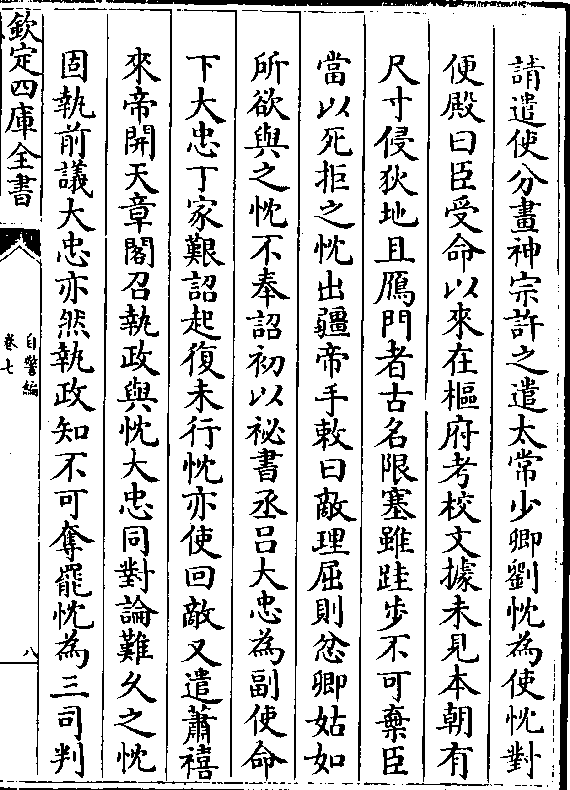 請遣使分畫神宗許之遣太常少卿劉忱為使忱對
便殿曰臣受命以來在樞府考校文據未見本朝有
尺寸侵狄地且鴈門者古名限塞雖跬步不可棄臣
當以死拒之忱出疆帝手敕曰敵理屈則忿卿姑如
所欲與之忱不奉詔初以祕書丞呂大忠為副使命
下大忠丁家艱詔起復未行忱亦使回敵又遣蕭禧
來帝開天章閣召執政與忱大忠同對論難久之忱
固執前議大忠亦然執政知不可奪罷忱為三司判
欽定四庫全書
自警編
卷七
八